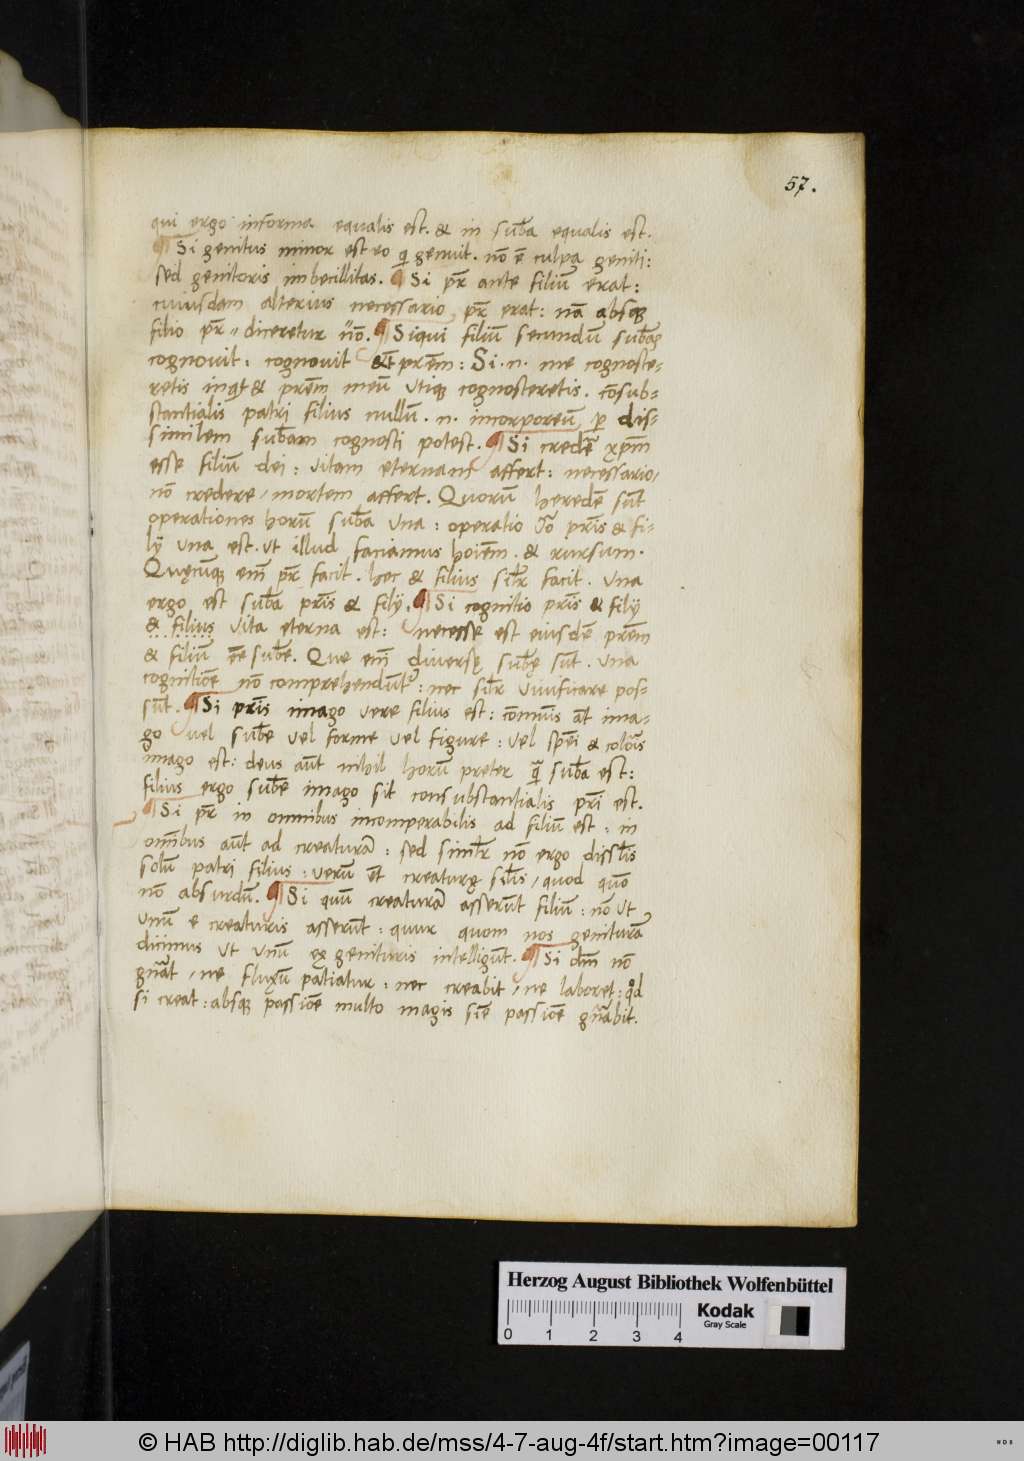 57.
qui ergo informa equalis est. & in sub̄a equalis est.
¶ Si genitus minor est eo q̄ genuit. nō ē culpa geniti:
sed genitoris imbecillitas. ¶ Si pr̄ ante filiū erat:
cuiusdam alterius necessario pr̄ erat: nā absqꝫ
filio pr̄ diceretur nō. ¶ Siqui filiū secundū sub̄aꝫ
cognovit: cognovit & pr̄em: Si .n. me cognosce-
retis inq̄t & pr̄em meū utiqꝫ cognosceretis. cōsub-
stantialis patri filius nullū .n. incorporeū, ꝑ dis-
similem sub̄am cognosci potest. ¶ Si credē xp̄m
esse filiū dei: vitam eternam affert: necessario/
nō credere/mortem affert. Quorū heredē sūt
operationes horū sub̄a una: operatio pr̄is & fi-
lij una est. ut illud faciamus hoīem. & rursum.
Quęcūqꝫ em̄ pr̄ facit. hec & filius sil̄r facit. una
ergo est sub̄a pr̄is & filij. ¶ Si cognitio pr̄is & filij
& filius vita eterna est: necesse est eiusdē pr̄em
& filiū eē sub̄e. Que em̄ diversę sub̄ę sūt. una
cognitiōe nō comprehendūtʳ: nec sil̄r vivificare pos-
sūt. ¶ Si pr̄is imago vere filius est: cōmūis āt ima-
go vel sub̄e vel forme vel figure: vel spēi & colōis
imago est: deus aūt nihil horū preter q̄ sub̄a est:
filius ergo sub̄e imago sit consubstantialis pr̄i est.
¶ Si pr̄ in omnibus incomperabilis ad filiū est: in
om̄ibus aūt ad creaturā: sed simīlr nō ergo dissīlis
solū patri filius: verū et creaturę sil̄is/quod quō
nō absurdū. ¶ Si quū creaturā asserūt filiū: nō ut
unū e creaturis asserūt: quur quom nos geniturā
dicimus ut unū ex genituris intelligūt. ¶ Si dm̄ nō
gn̄at/ne fluxū patiatur: nec creabit/ne laboret: qd
si creat: absqꝫ passiōe multo magis sine passiōe gn̄abit.
Herzog August Bibliothek Wolfenbüttel
0 1 2 3 4
Kodak
Gray Scale
© HAB http://diglib.hab.de/mss/4-7-aug-4f/start.htm?image=00117